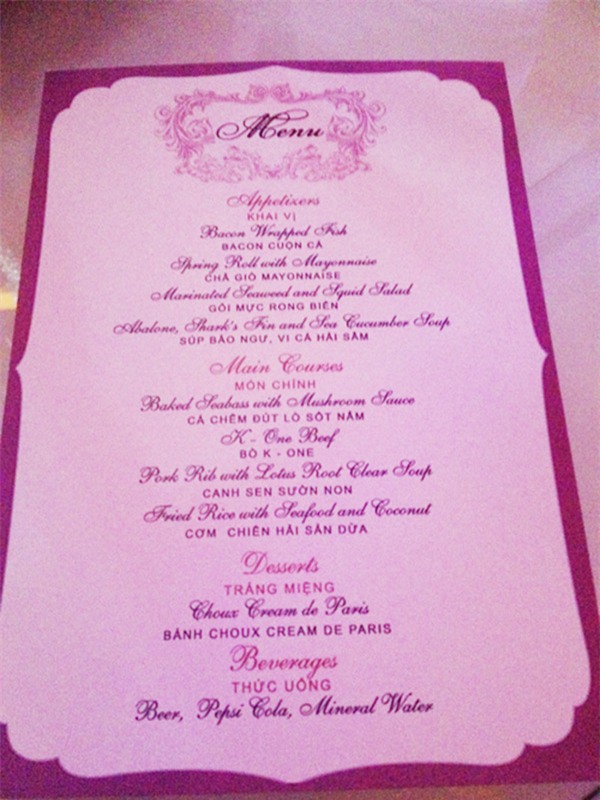 Menu
Appetizers
KHAI VỊ
Bacon Wrapped Fish
BACON CUỘN CÁ
Spring Roll with Mayonnaise
CHẢ GIÒ MAYONNAISE
Marinated Seaweed and Squid Salad
GỎI MỰC RONG BIỂN
Abalone, Shark's Fin and Sea Cucumber Soup
SÚP BÀO NGƯ, VI CÁ HẢI SÂM
Main Courses
MÓN CHÍNH
Baked Seabass with Mushroom Sauce
CÁ CHẼM ĐÚT LÒ SỐT NẤM
K - One Beef
BÒ K - ONE
Pork Rib with Lotus Root Clear Soup
CANH SEN SƯỜN NON
Fried Rice with Seafood and Coconut
CƠM CHIÊN HẢI SẢN DỪA
Desserts
TRÁNG MIỆNG
Choux Cream de Paris
BÁNH CHOUX CREAM DE PARIS
Beverages
THỨC UỐNG
Beer, Pepsi Cola, Mineral Water